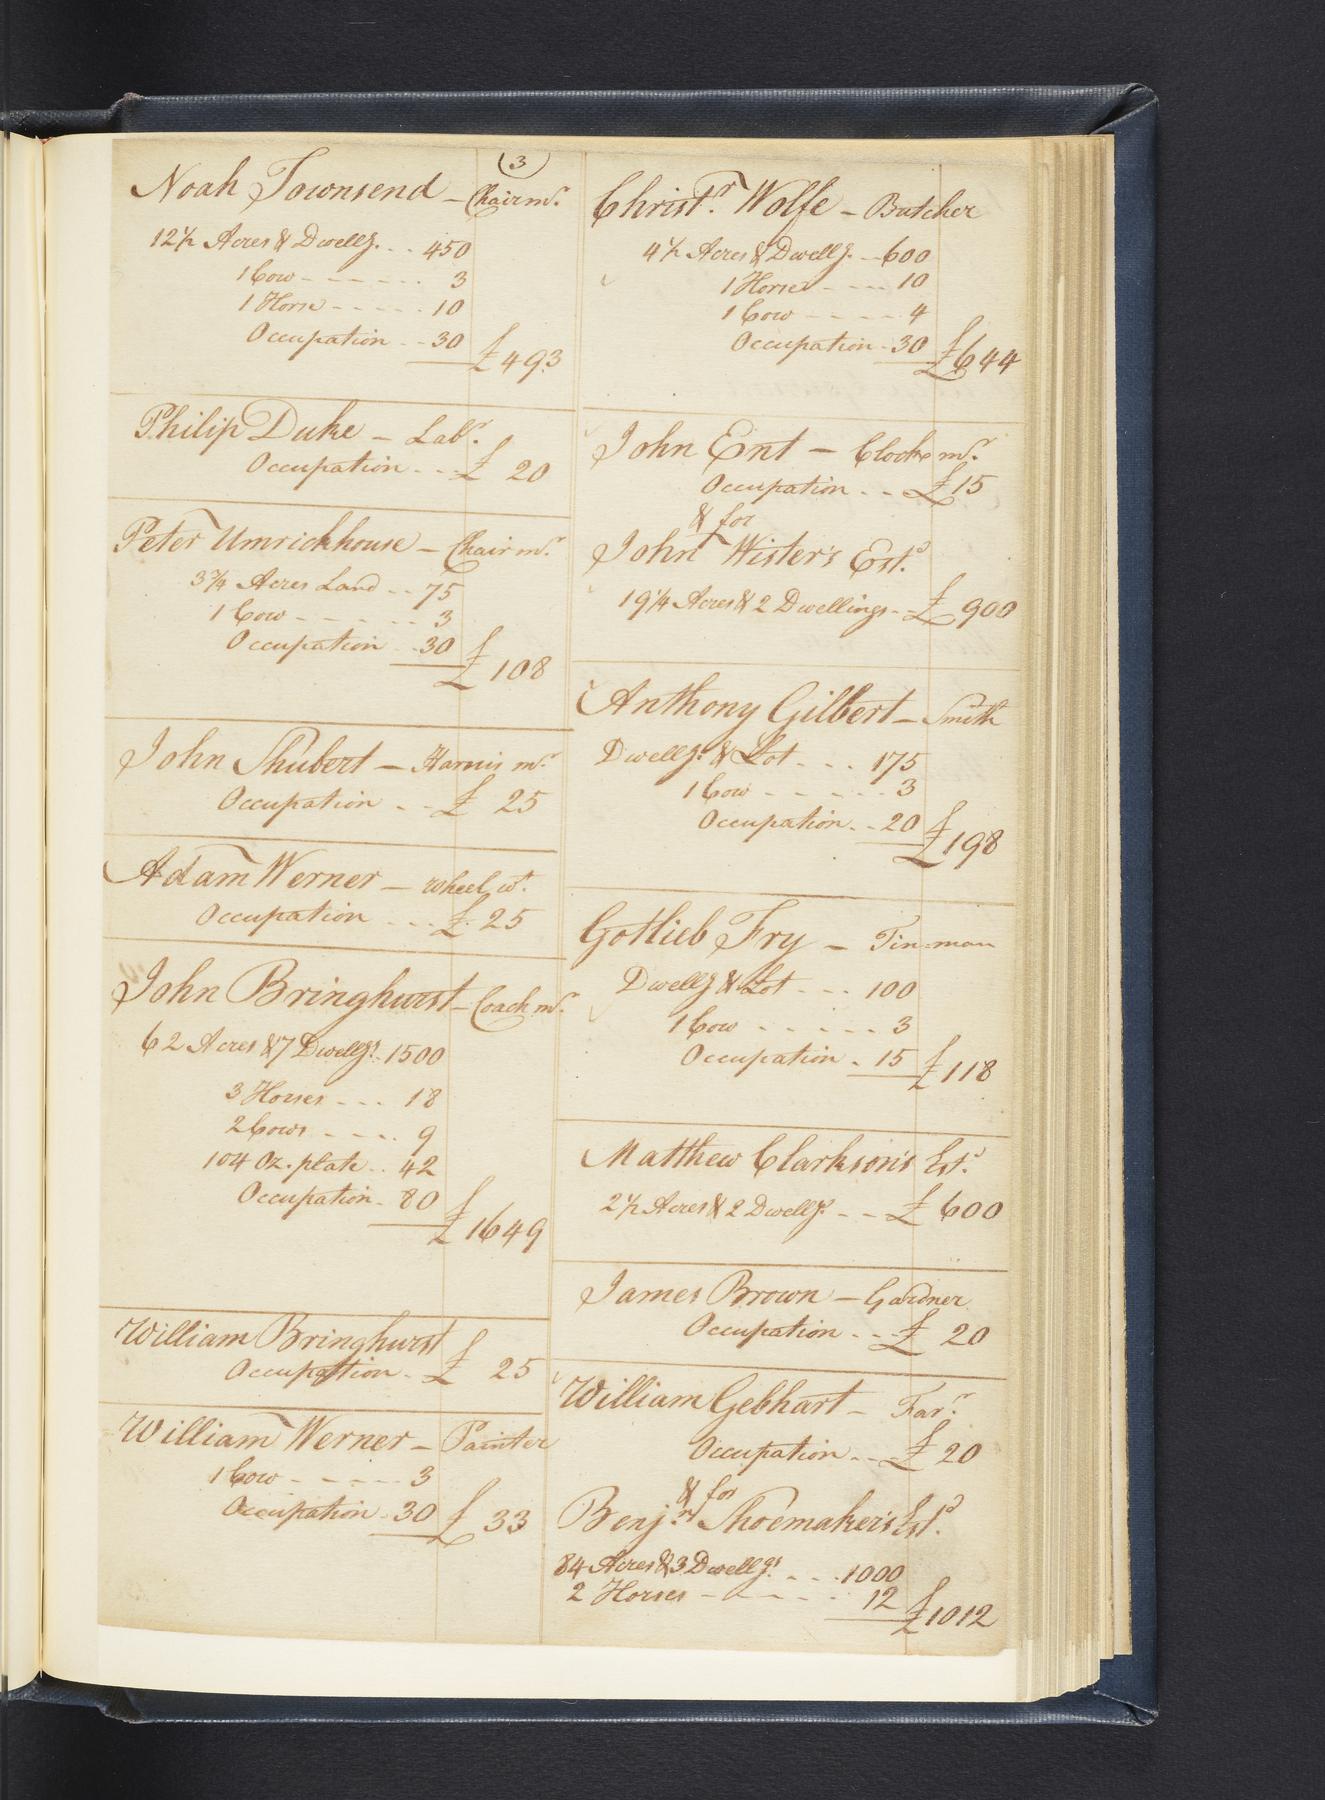 (3)
Noah Townsend – Chairmr.
12½ Acres & Dwellg. . . 450
1 Cow - - - - . . . 3
1 Horse - - - - . . 10
Occupation . . - 30
£493
Philip Duke – Labr.
Occupation . . - £ 20
Peter Umrickhouse – Chairmr.
3¾ Acres Land . . - 75
1 Cow - - - - . . . 3
Occupation . . 30
£108
John Shubert – Harnis mr.
Occupation . . - £ 25
Adam Werner – wheel wt.
Occupation . . . £. 25
John Bringhurst – Coach mr.
62 Acres & 7 Dwellgs. . 1500
3 Horses - - - . 18
2 Cows - - - . . 9
104 Oz. plate . . 42
Occupation - 80
£1649
William Bringhurst
Occupation . - £ 25
William Werner – Painter
1 Cow - - - - - 3
Occupation . 30
£ 33
Christr. Wolfe – Butcher
4½ Acres & Dwellg. - - 600
1 Horse - - - - 10
1 Cow - - - - . 4
Occupation . . 30
£644
John Ent – Clock mr.
Occupation . . - £15
& for
John Wister's Estd.
19¼ Acres & 2 Dwellings - £ 900
Anthony Gilbert – Smith
Dwellg. & Lot . . . . 175
1 Cow - - - - . . 3
Occupation . . - 20
£198
Gotlieb Fry – Tin-man
Dwellg & Lot . - - . 100
1 Cow . . . . . . 3
Occupation . 15
£118
Matthew Clarkson's Estd.
2½ Acres & 2 Dwellgs. - - £ 600
James Brown – Gardner
Occupation . . - £ 20
William Gebhart – Farr.
Occupation . . - £ 20
& for
Benjn. Shoemaker's Estd.
84 Acres & 3 Dwellgs. . . . 1000
2 Horses - - - - . . 12
£1012